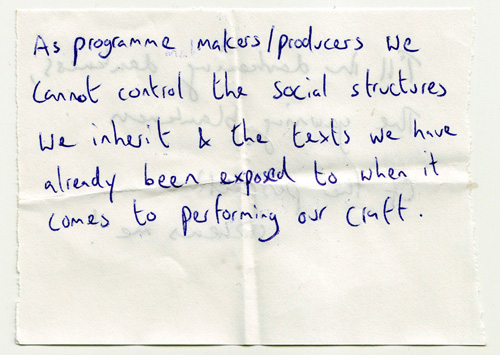 As programme makers/producers we
cannot control the social structures
we inherit & the texts we have
already been exposed to when it
comes to performing our craft.